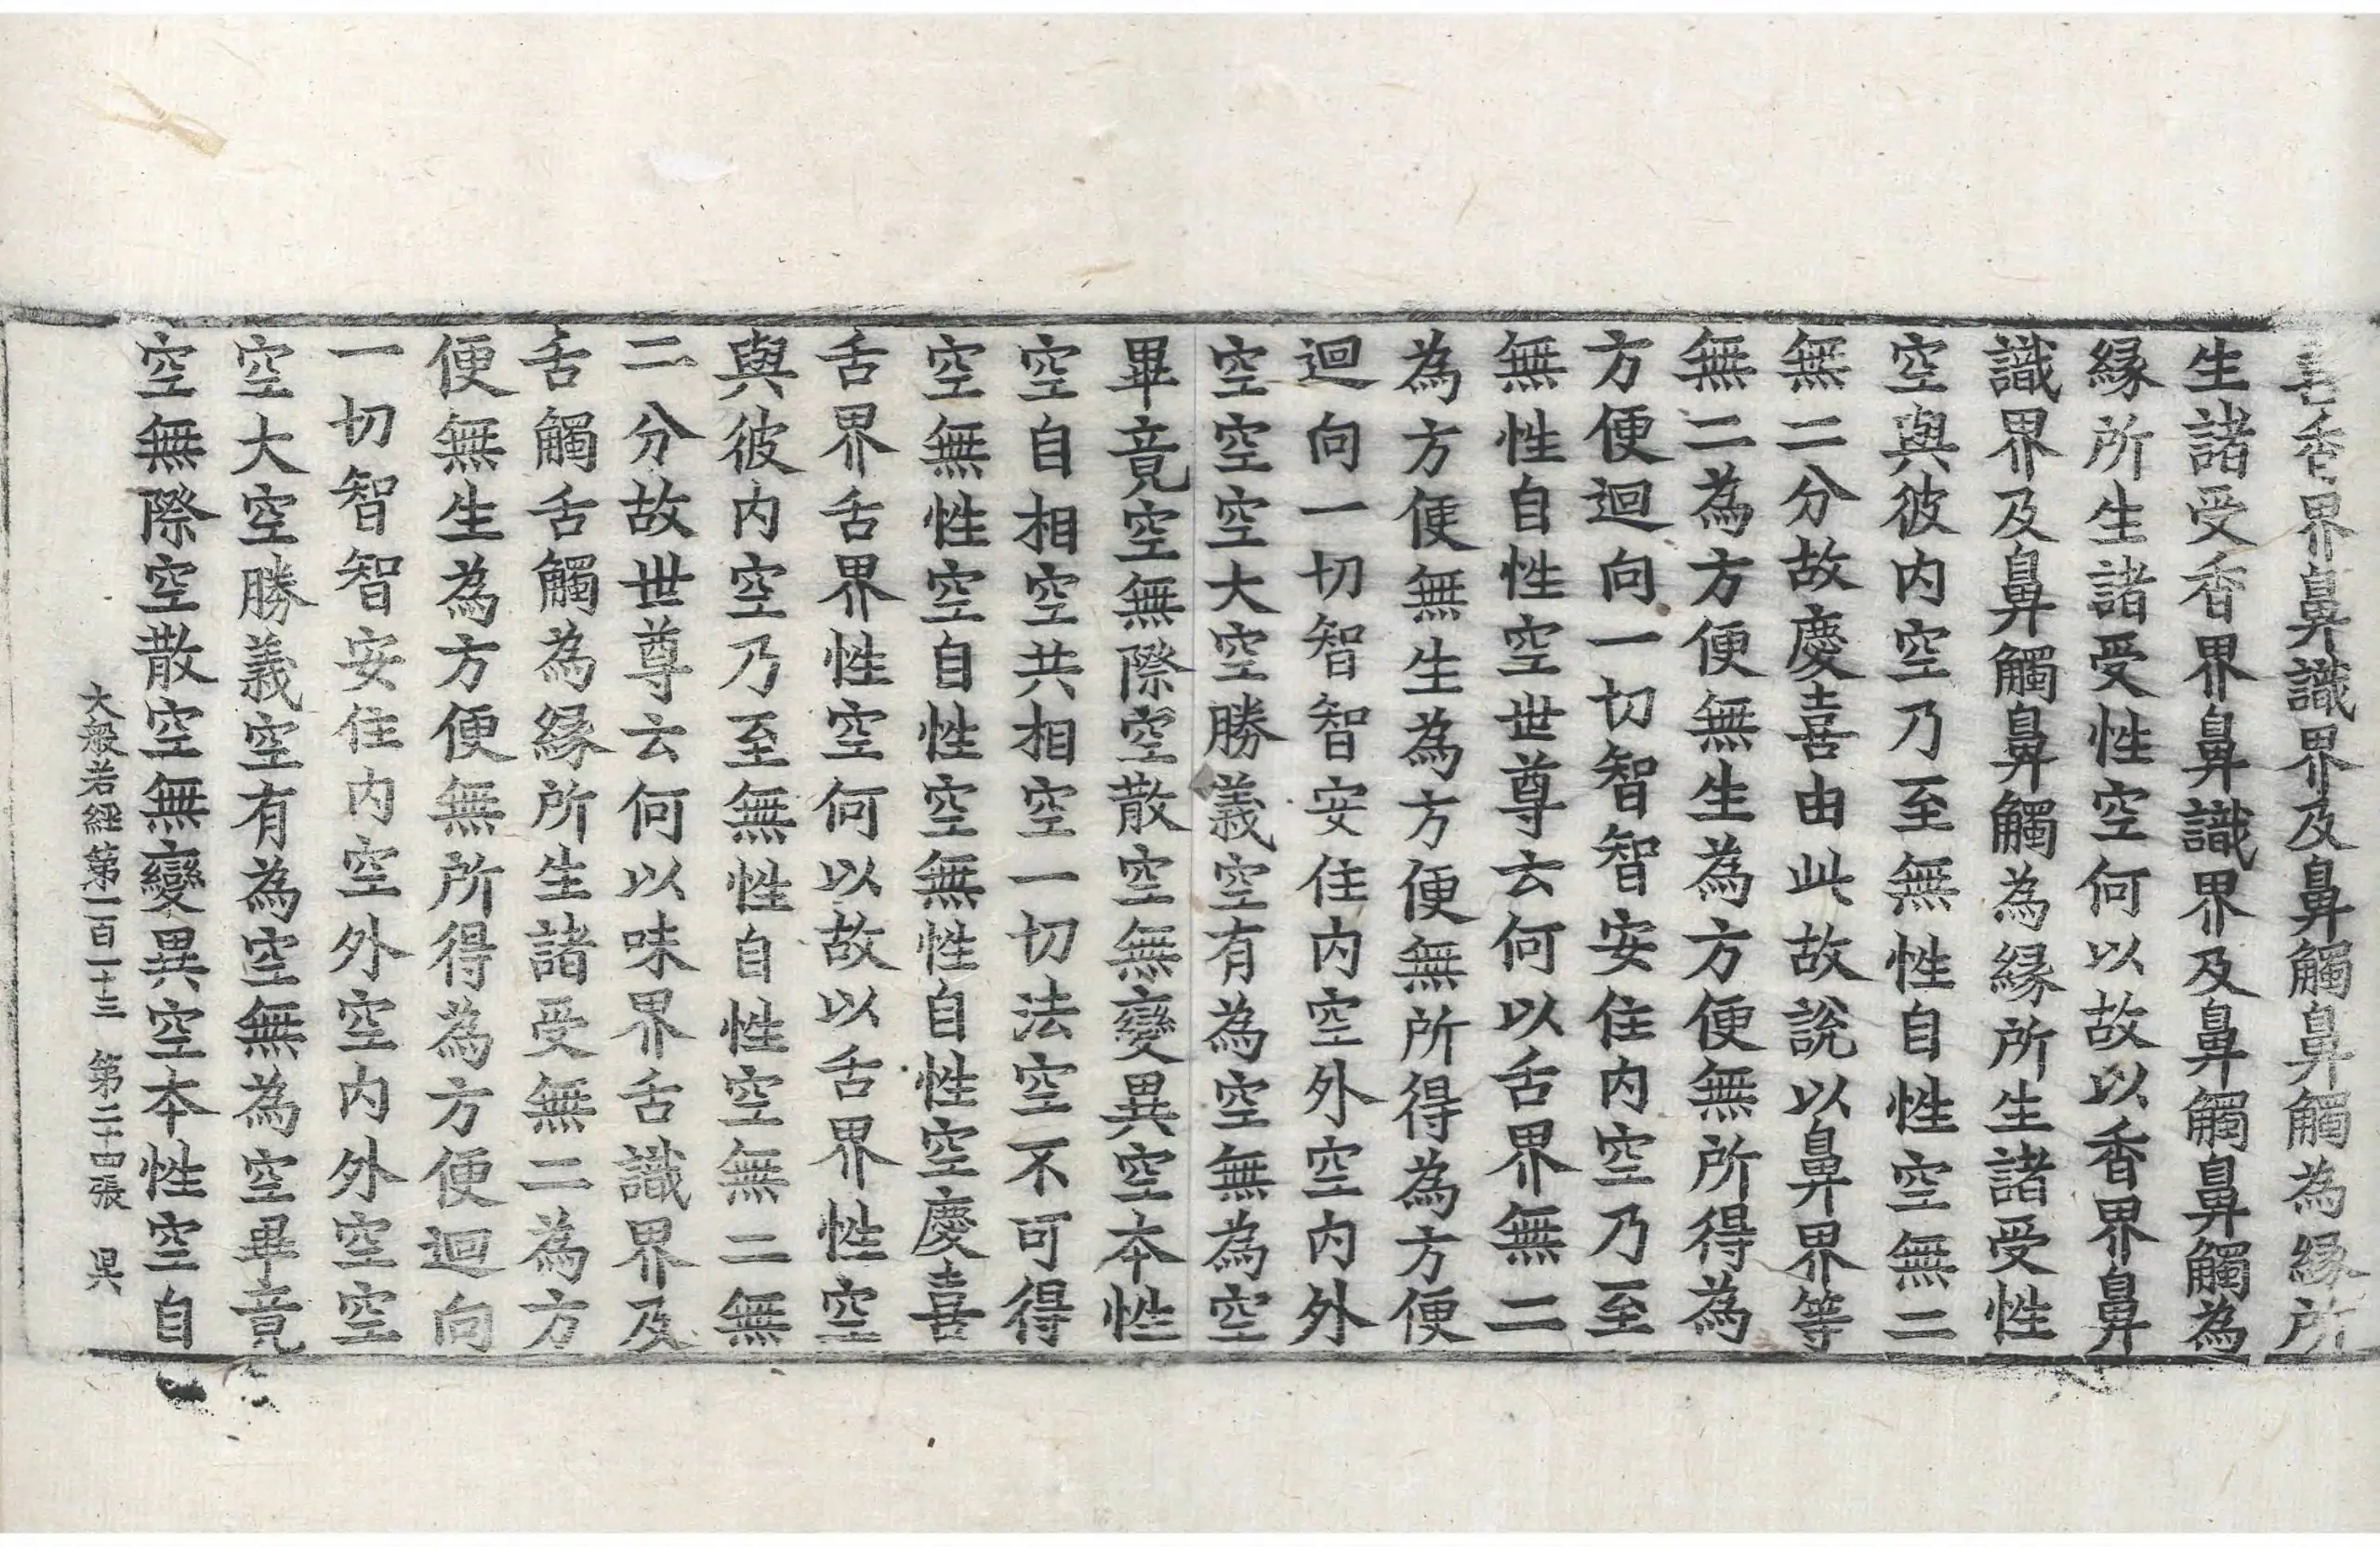 喜香界鼻識界及鼻觸鼻觸為縁所
生諸受香界鼻識界及鼻觸鼻觸為
縁所生諸受性空何以故以香界鼻
識界及鼻觸鼻觸為縁所生諸受性
空與彼内空乃至無性自性空無二
無二分故慶喜由此故說以鼻界等
無二為方便無生為方便無所得為
方便迴向一切智智安住内空乃至
無性自性空世尊云何以舌界無二
為方便無生為方便無所得為方便
迴向一切智智安住内空外空内外
空空空大空勝義空有為空無為空
畢竟空無際空散空無變異空本性
空自相空共相空一切法空不可得
空無性空自性空無性自性空慶喜
舌界舌界性空何以故以舌界性空
與彼内空乃至無性自性空無二無
二分故世尊云何以味界舌識界及
舌觸舌觸為縁所生諸受無二為方
便無生為方便無所得為方便迴向
一切智智安住内空外空内外空空
空大空勝義空有為空無為空畢竟
空無際空散空無變異空本性空自
大般若經第一百一十三 第二十四張 昃